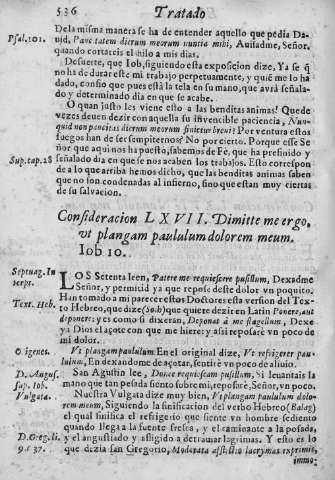 536 Tratado
Psal. 101.
De la misma manera se ha de entender aquello que pedia Da-
uid, Pauc tatem dierum meorum nuntia mihi, Auisadme, Señor,
quando cortareis el hilo a mis dias.
De suerte, que Iob, siguiendo esta exposicion dize, Ya se q̃
no ha de durar este mi trabajo perpetuamente, y quié me lo ha
dado, confio que pues está la tela en su mano, que avrá señala-
do y determinado dia en que se acabe.
O quan justo les viene esto a las benditas animas! Que de
vezes deuen dezir con aquella su invencible paciencia, Nun-
quid non paucies dierum meorum finietur breui? Por ventura estos
fuegos han de ser sempiternos? No por cierto. Porque esse Se-
ñor que aqui nos ha puesto, sabemos de Fé, que ha prefinido y
Sup. cap. 28
señalado dia en que se nos acaben los trabajos. Esto correspon
de a lo que arriba hemos dicho, que las benditas animas saben
que no son condenadas al infierno, sino que estan muy ciertas
de su salvacion.
Consideracion LXVII. Dimitte me ergo,
vt plangam paululum dolorem meum.
Iob 10.
Septuag. In
terps.
LOS Setenta leen, Patere me requiescere pusillum, Dexadme
Señor, y permitid ya que repose deste dolor vn poquito.
Text. Heb.
Han tomado a mi parecer estos Doctores esta version del Tex-
to Hebreo, que dize (Soh) que quiere dezir en Latin Ponere, aut
deponere: y es como si dixeran, Deponat a me flagellum, Dexe
ya Dios el açote con que me hiere: y assi reposaré vn poco de
mi dolor.
Origenes.
Vt plangam paululum En el original dize, Vt refrigerer pau-
lulum, En dexandome de açotar, sentiré vn poco de aliuio.
D. August.
sup. Iob.
San Agustin lee, Donec requiescam pusillum, Si leuantais la
mano que tan pesada siento sobre mi, reposaré, Señor, vn poco.
Vulgata.
Nuestra Vulgata dize muy bien, Vt plangam paululum dolo-
rem meum, Siguiendo la sinificacion del verbo Hebreo (Balag)
el qual sinifica el refrigerio que siente vn hombre sediento
quando llega a la fuente fresca, y el caminante a la posada,
D. Greg. li.
9. c. 37.
y el angustiado y afligido a detramar lagrimas. Y esto es lo
que dezia san Gregorio, Moderata afflictio lacrymas exprimit,
immo-